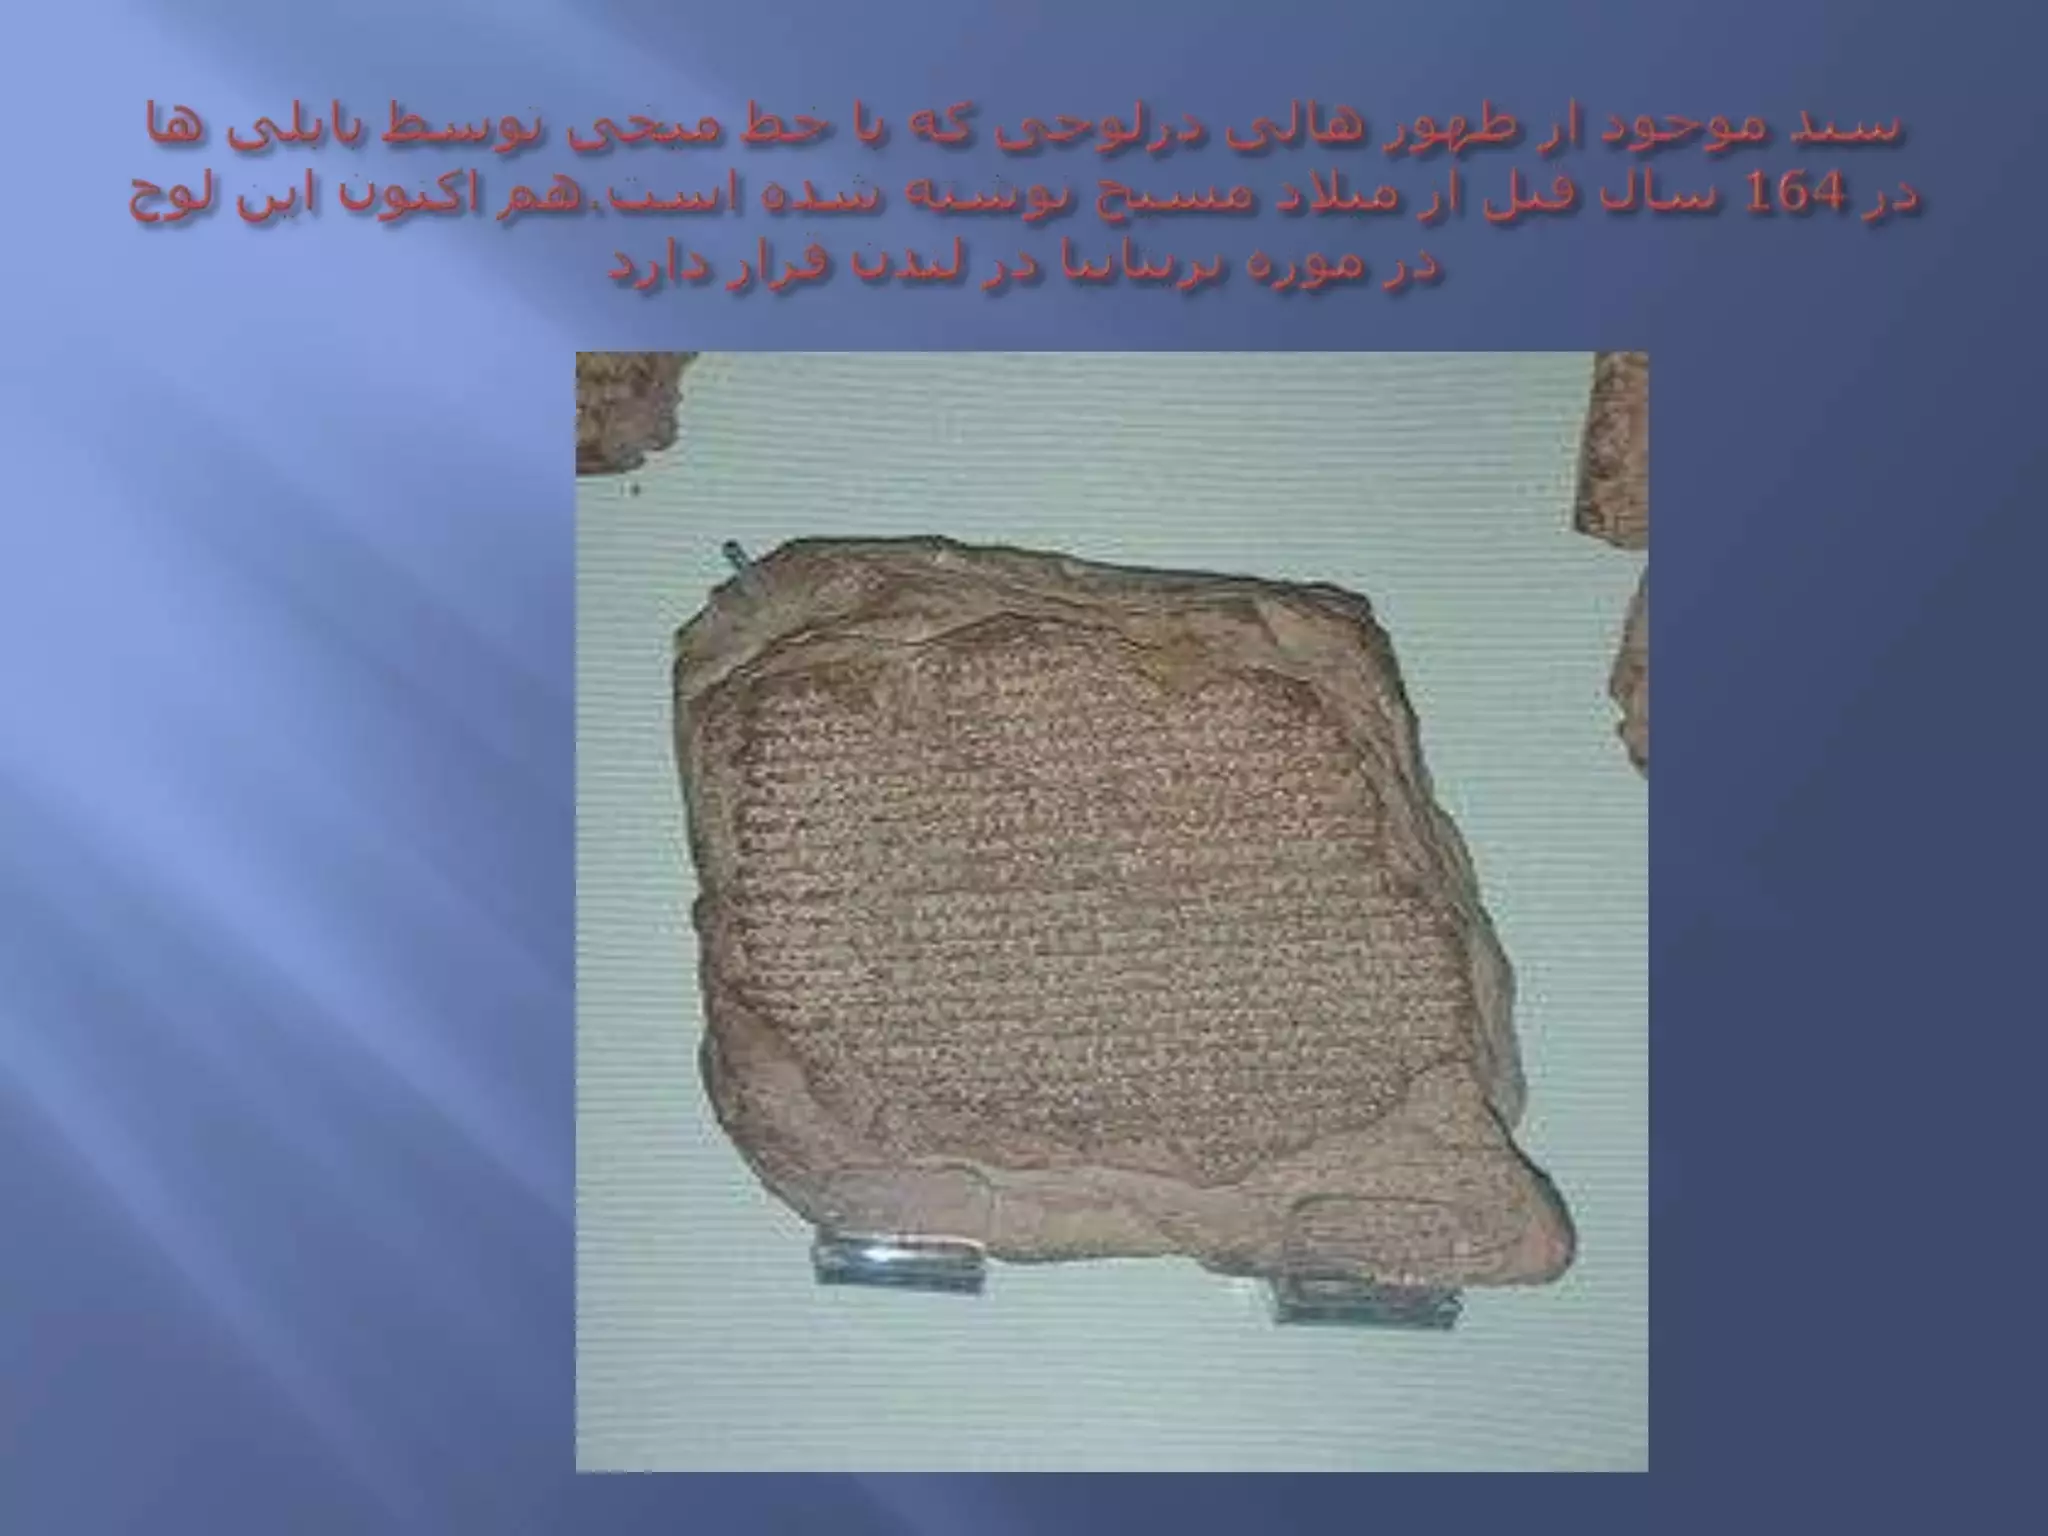 سند موجود از ظهور هالی درلوحی که با خط میخی توسط بابلی ها
در 164 سال قبل از میلاد مسیح نوشته شده است.هم اکنون این لوح
در موزه بریتانیا در لندن قرار دارد